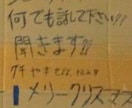 何でも話して下さい!!
聞きます!!
グチ や
メリークリスマ